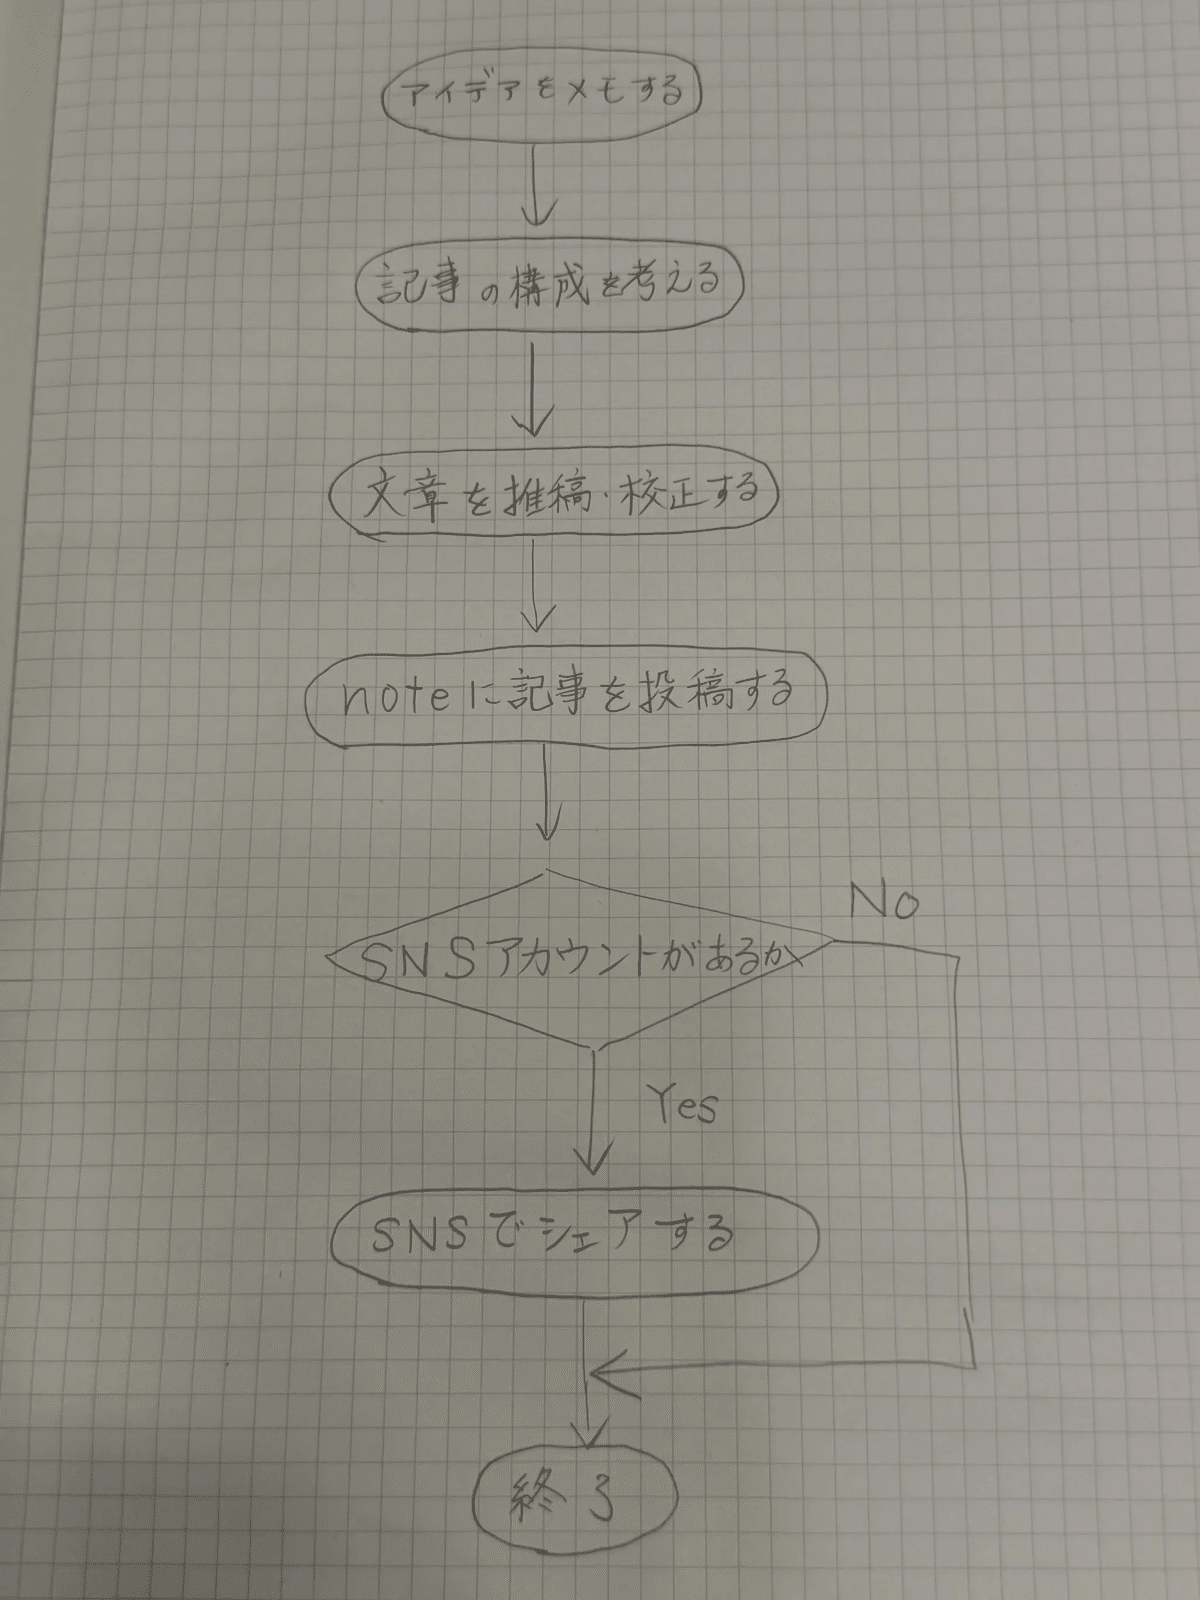 アイデアをメモする
記事の構成を考える
文章を推稿・校正する
noteに記事を投稿する
SNSアカウントがあるか
No
Yes
SNSでシェアする
終了